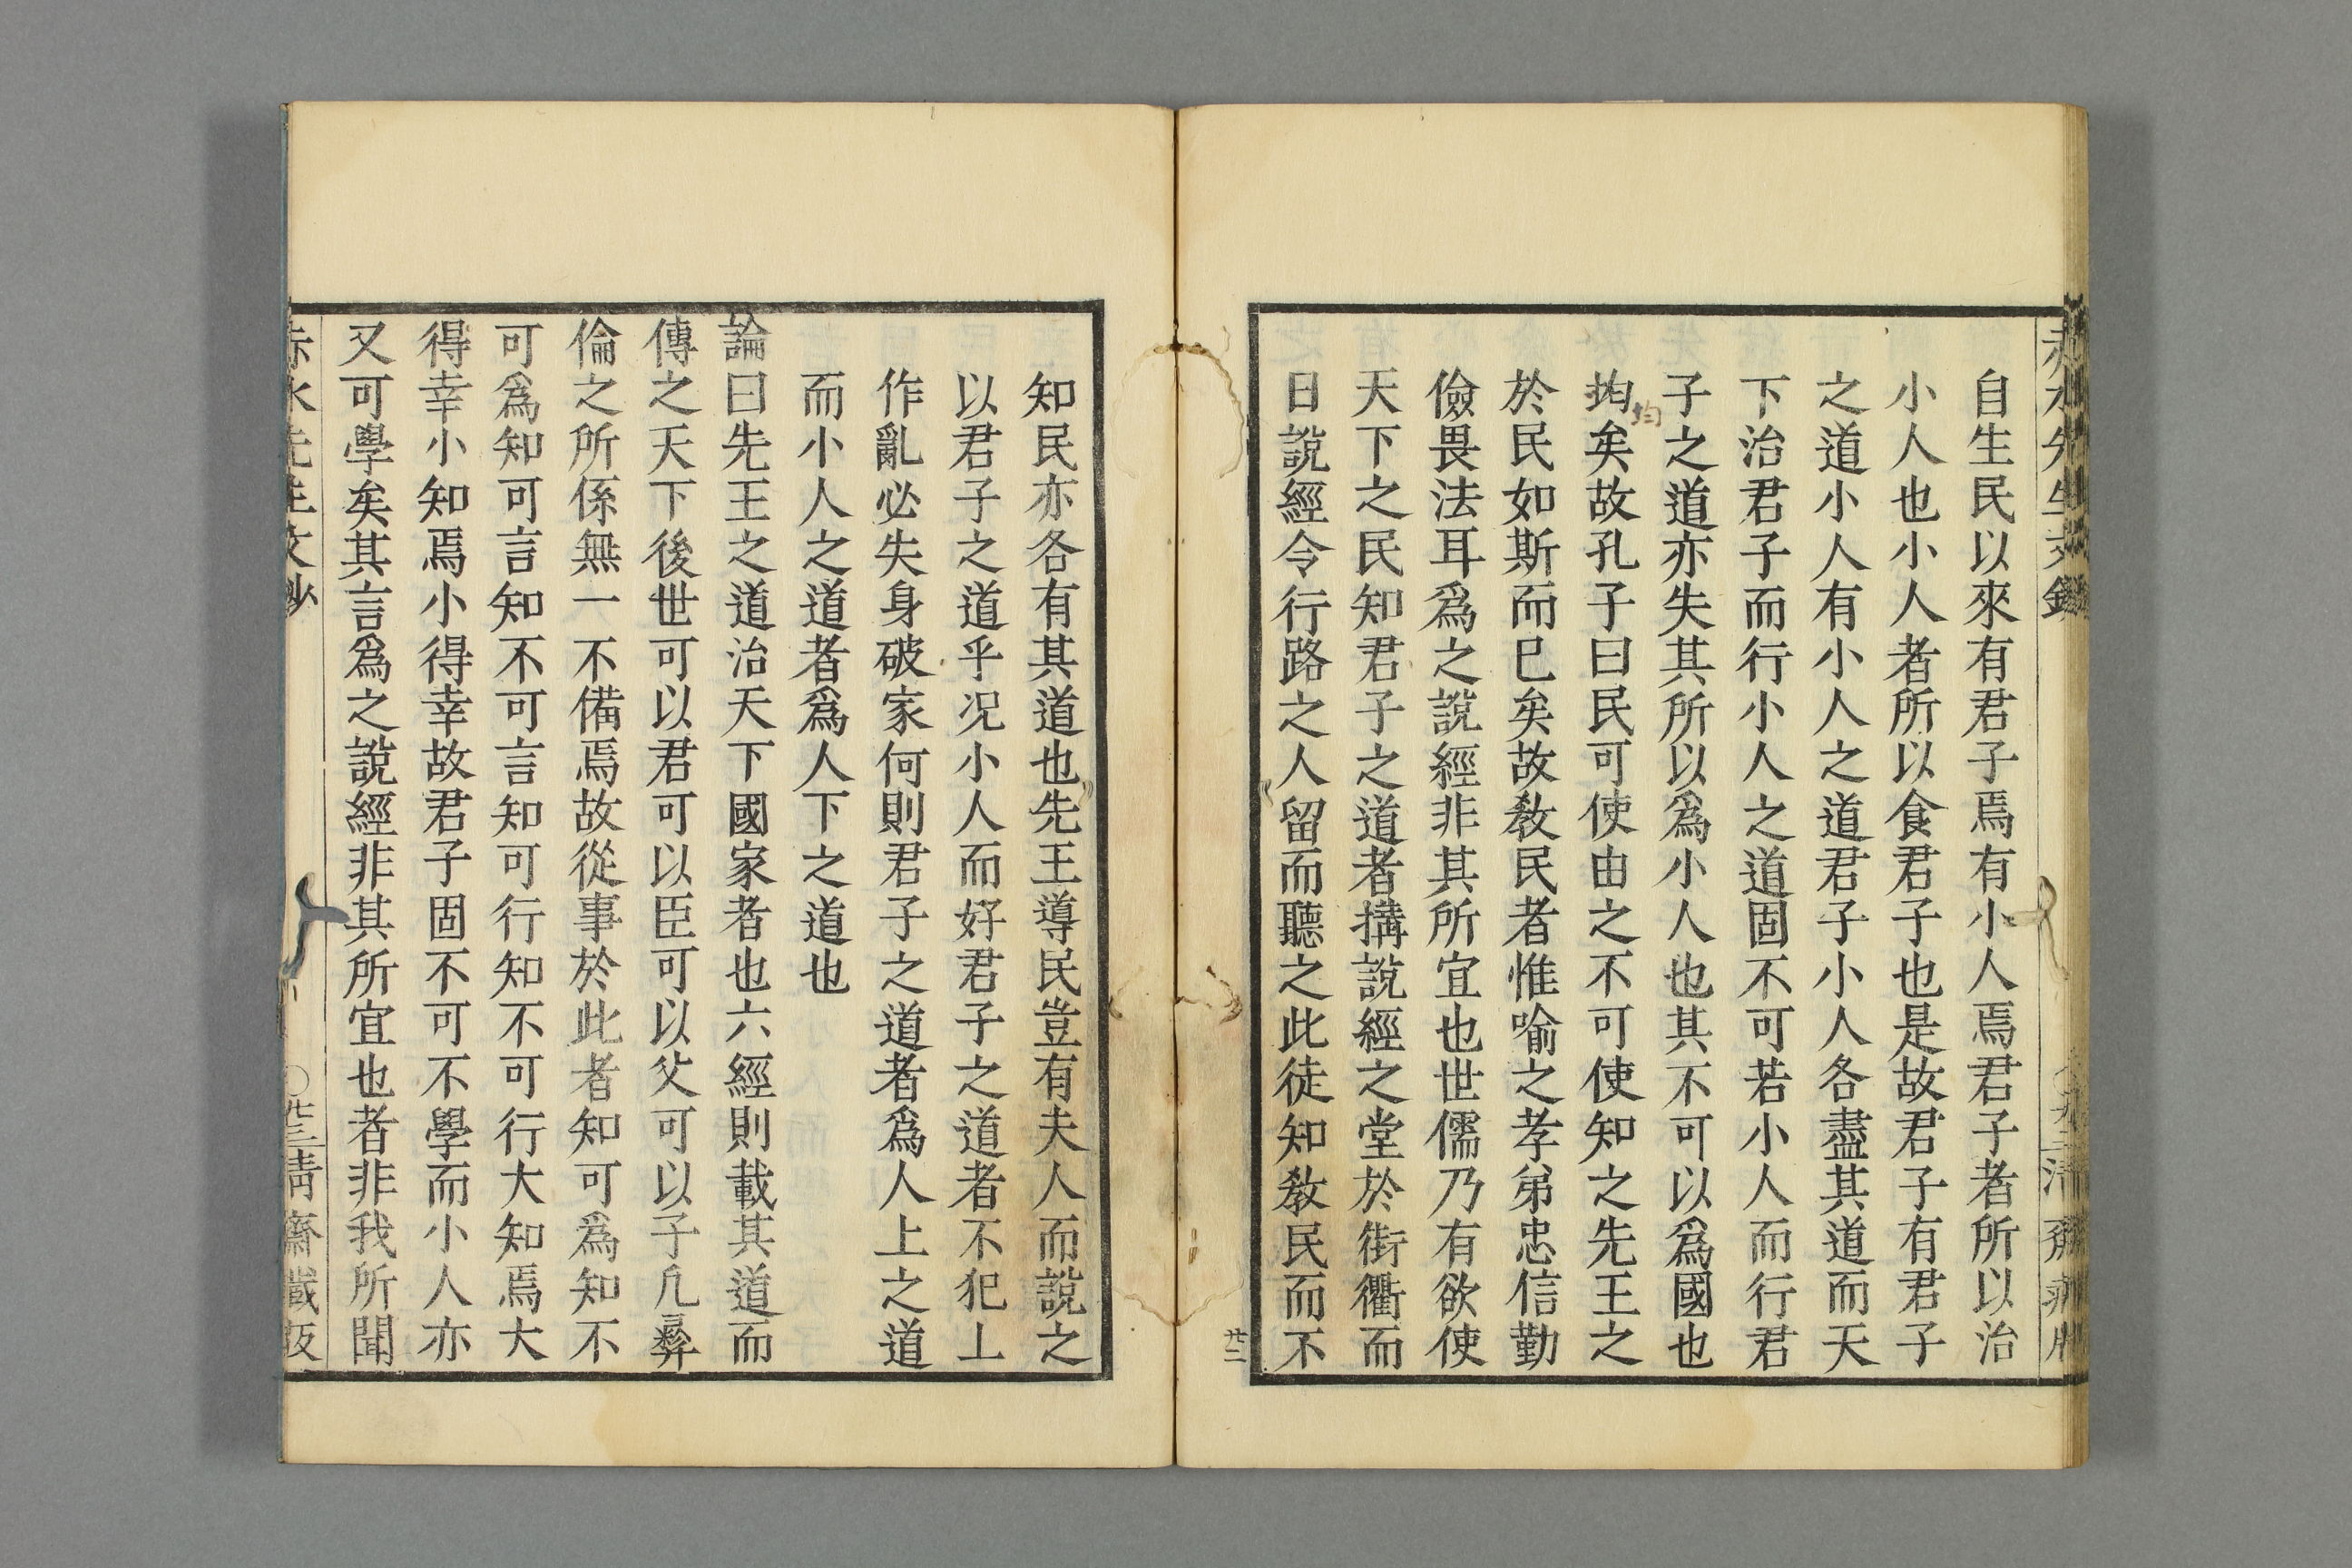 自生民以來有君子焉有小人焉君子者所以治
小人也小人者所以食君子也是故君子有君子
之道小人有小人之道君子小人各盡其道而天
下治君子而行小人之道固不可若小人而行君
子之道亦失其所以爲小人也其不可以爲國也
均矣故孔子曰民可使由之不可使知之先王之
均
於民如斯而已矣故敎民者惟喻之孝弟忠信勤
儉畏法耳爲之說經非其所宜也世儒乃有欲使
天下之民知君子之道者搆說經之堂於街衢而
日說經令行路之人留而聽之此徒知敎民而不
廿二
知民亦各有其道也先王導民豈有夫人而說之
以君子之道乎况小人而好君子之道者不犯上
作亂必失身破家何則君子之道者爲人上之道
而小人之道者爲人下之道也
論曰先王之道治天下國家者也六經則載其道而
傳之天下後世可以君可以臣可以父可以子凡彜
倫之所係無一不備焉故從事於此者知可爲知不
可爲知可言知不可言知可行知不可行大知焉大
得幸小知焉小得幸故君子固不可不學而小人亦
又可學矣其言爲之說經非其所宜也者非我所聞
赤水先生文鈔
〇廿三靑齋藏板